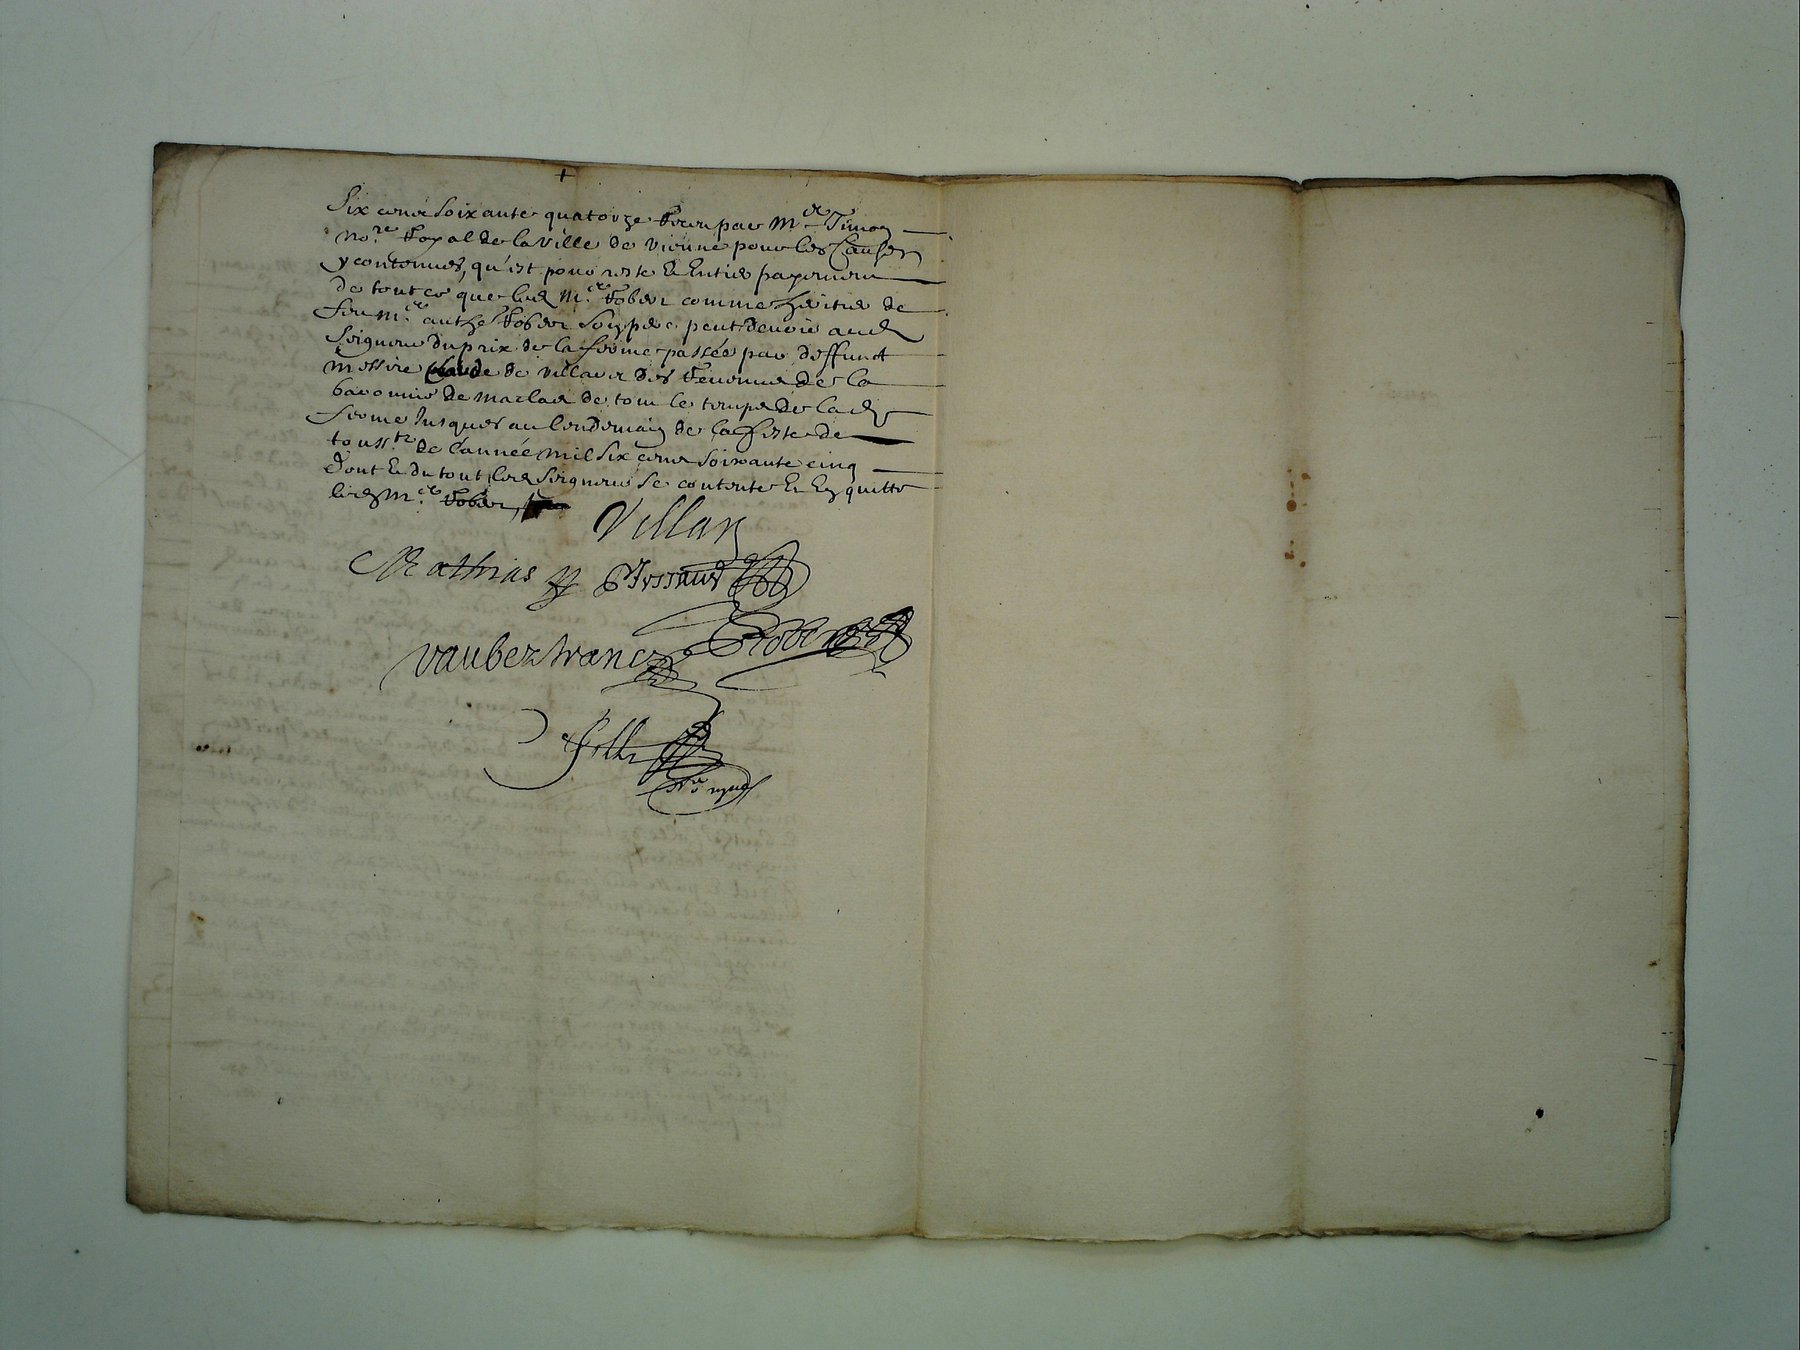 Six cent soixante quatorze receu par Me Timon
nore Royal de la ville de vienne pour les causes
y contenues, qu'est pour reste et entier payement
de tout ce que led Me Rober comme heritier de
feu Me anthe Rober son pere peut devoir aud
seigneur du prix de la ferme passée par deffunct
messire claude de villars des revenus de la
baronnie de maclas de tout le temps de lad
ferme jusques au lendemain de la feste de
toussts de l'année mil six cent soixante cinq
dont et du tout led seigneur se contente et en quitte
led Me Rober
Villars
Mathias
Tessaud
vaubertrand
Rober